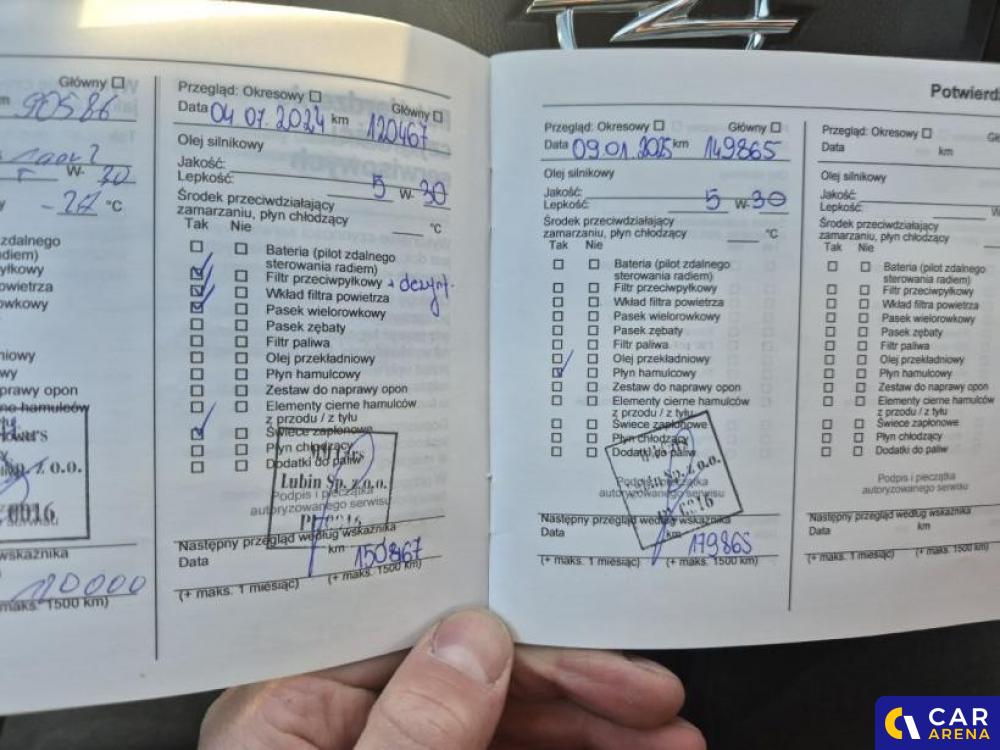 Główny ☐
km 90586
W- 30
°C
zdalnego
radiem)
pyłkowy
powietrza
rowkowy
niowy
wy
prawy opon
hamulców
p. z o.o.
0016
wskaźnika
maks. 1500 km)
Przegląd: Okresowy ☐ Główny ☐
Data 04 07. 2024 km 120467
Olej silnikowy
Jakość:
Lepkość: 5 W-30
Środek przeciwdziałający
zamarzaniu, płyn chłodzący °C
Tak Nie
Bateria (pilot zdalnego
sterowania radiem)
Filtr przeciwpyłkowy + dezynf.
Wkład filtra powietrza
Pasek wielorowkowy
Pasek zębaty
Filtr paliwa
Olej przekładniowy
Płyn hamulcowy
Zestaw do naprawy opon
Elementy cierne hamulców
z przodu / z tyłu
Świece zapłonowe
Płyn chłodzący
Dodatki do paliw
Lubin Sp. z o.o.
Podpis i pieczątka
autoryzowanego serwisu
Następny przegląd według wskaźnika
Data km 150467
(+ maks. 1 miesiąc) (+ maks. 1500 km)
Przegląd: Okresowy ☐ Główny ☐
Data 09.01.2025 km 149865
Olej silnikowy
Jakość:
Lepkość: 5 W-30
Środek przeciwdziałający
zamarzaniu, płyn chłodzący °C
Tak Nie
Bateria (pilot zdalnego
sterowania radiem)
Filtr przeciwpyłkowy
Wkład filtra powietrza
Pasek wielorowkowy
Pasek zębaty
Filtr paliwa
Olej przekładniowy
Płyn hamulcowy
Zestaw do naprawy opon
Elementy cierne hamulców
z przodu / z tyłu
Świece zapłonowe
Płyn chłodzący
Dodatki do paliw
Sp. z o.o.
Podpis i pieczątka
autoryzowanego serwisu
Następny przegląd według wskaźnika
Data km 179865
(+ maks. 1 miesiąc) (+ maks. 1500 km)
Potwierdz
Przegląd: Okresowy ☐ Gł
Data km
Olej silnikowy
Jakość:
Lepkość: W
Środek przeciwdziałający
zamarzaniu, płyn chłodzący
Tak Nie
Bateria (pilot zdalnego
sterowania radiem)
Filtr przeciwpyłkowy
Wkład filtra powietrza
Pasek wielorowkowy
Pasek zębaty
Filtr paliwa
Olej przekładniowy
Płyn hamulcowy
Zestaw do naprawy opon
Elementy cierne hamulców
z przodu / z tyłu
Świece zapłonowe
Płyn chłodzący
Dodatki do paliw
Podpis i pieczątka
autoryzowanego serwisu
Następny przegląd według wskaźnika
Data km
(+ maks. 1 miesiąc) (+ maks. 1500 km)
CAR
ARENA